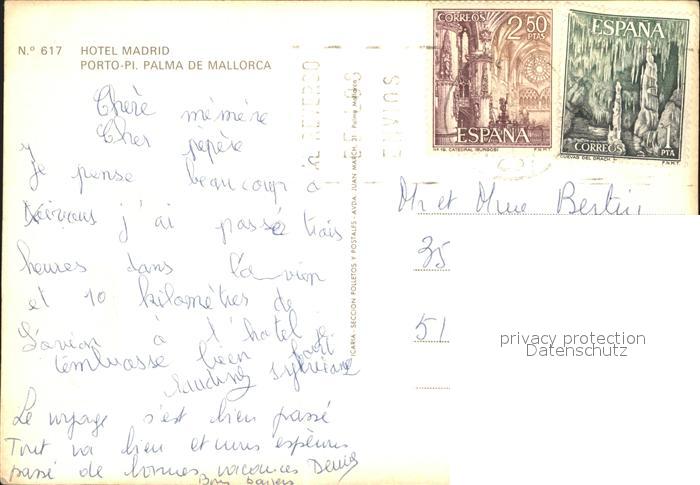 N.º 617 HOTEL MADRID
PORTO-PI. PALMA DE MALLORCA
Chère mémère
Cher pépère
Je pense beaucoup à
j'ai passé trois
heures dans l'avion
et 10 kilomètres de
L'avion à l'hotel je
t'embrasse bien fort
Sylviane
Le voyage s'est bien passé
Tout va bien et nous espérons
passé de bonnes vacances Denise
Bons baisers
ICARIA - SECCION FOLLETOS Y POSTALES - AVDA. JUAN MARCH, 21 Palma Mallorca
AL REVERSO
DE LOS
ENVIOS
CORREOS 2,50 PTAS
ESPAÑA
CATEDRAL BURGOS F.N.M.T.
ESPAÑA
CORREOS 1 PTA
CUEVAS DEL DRACH F.N.M.T.
Mr et Mme Bertin
35
51
privacy protection
Datenschutz